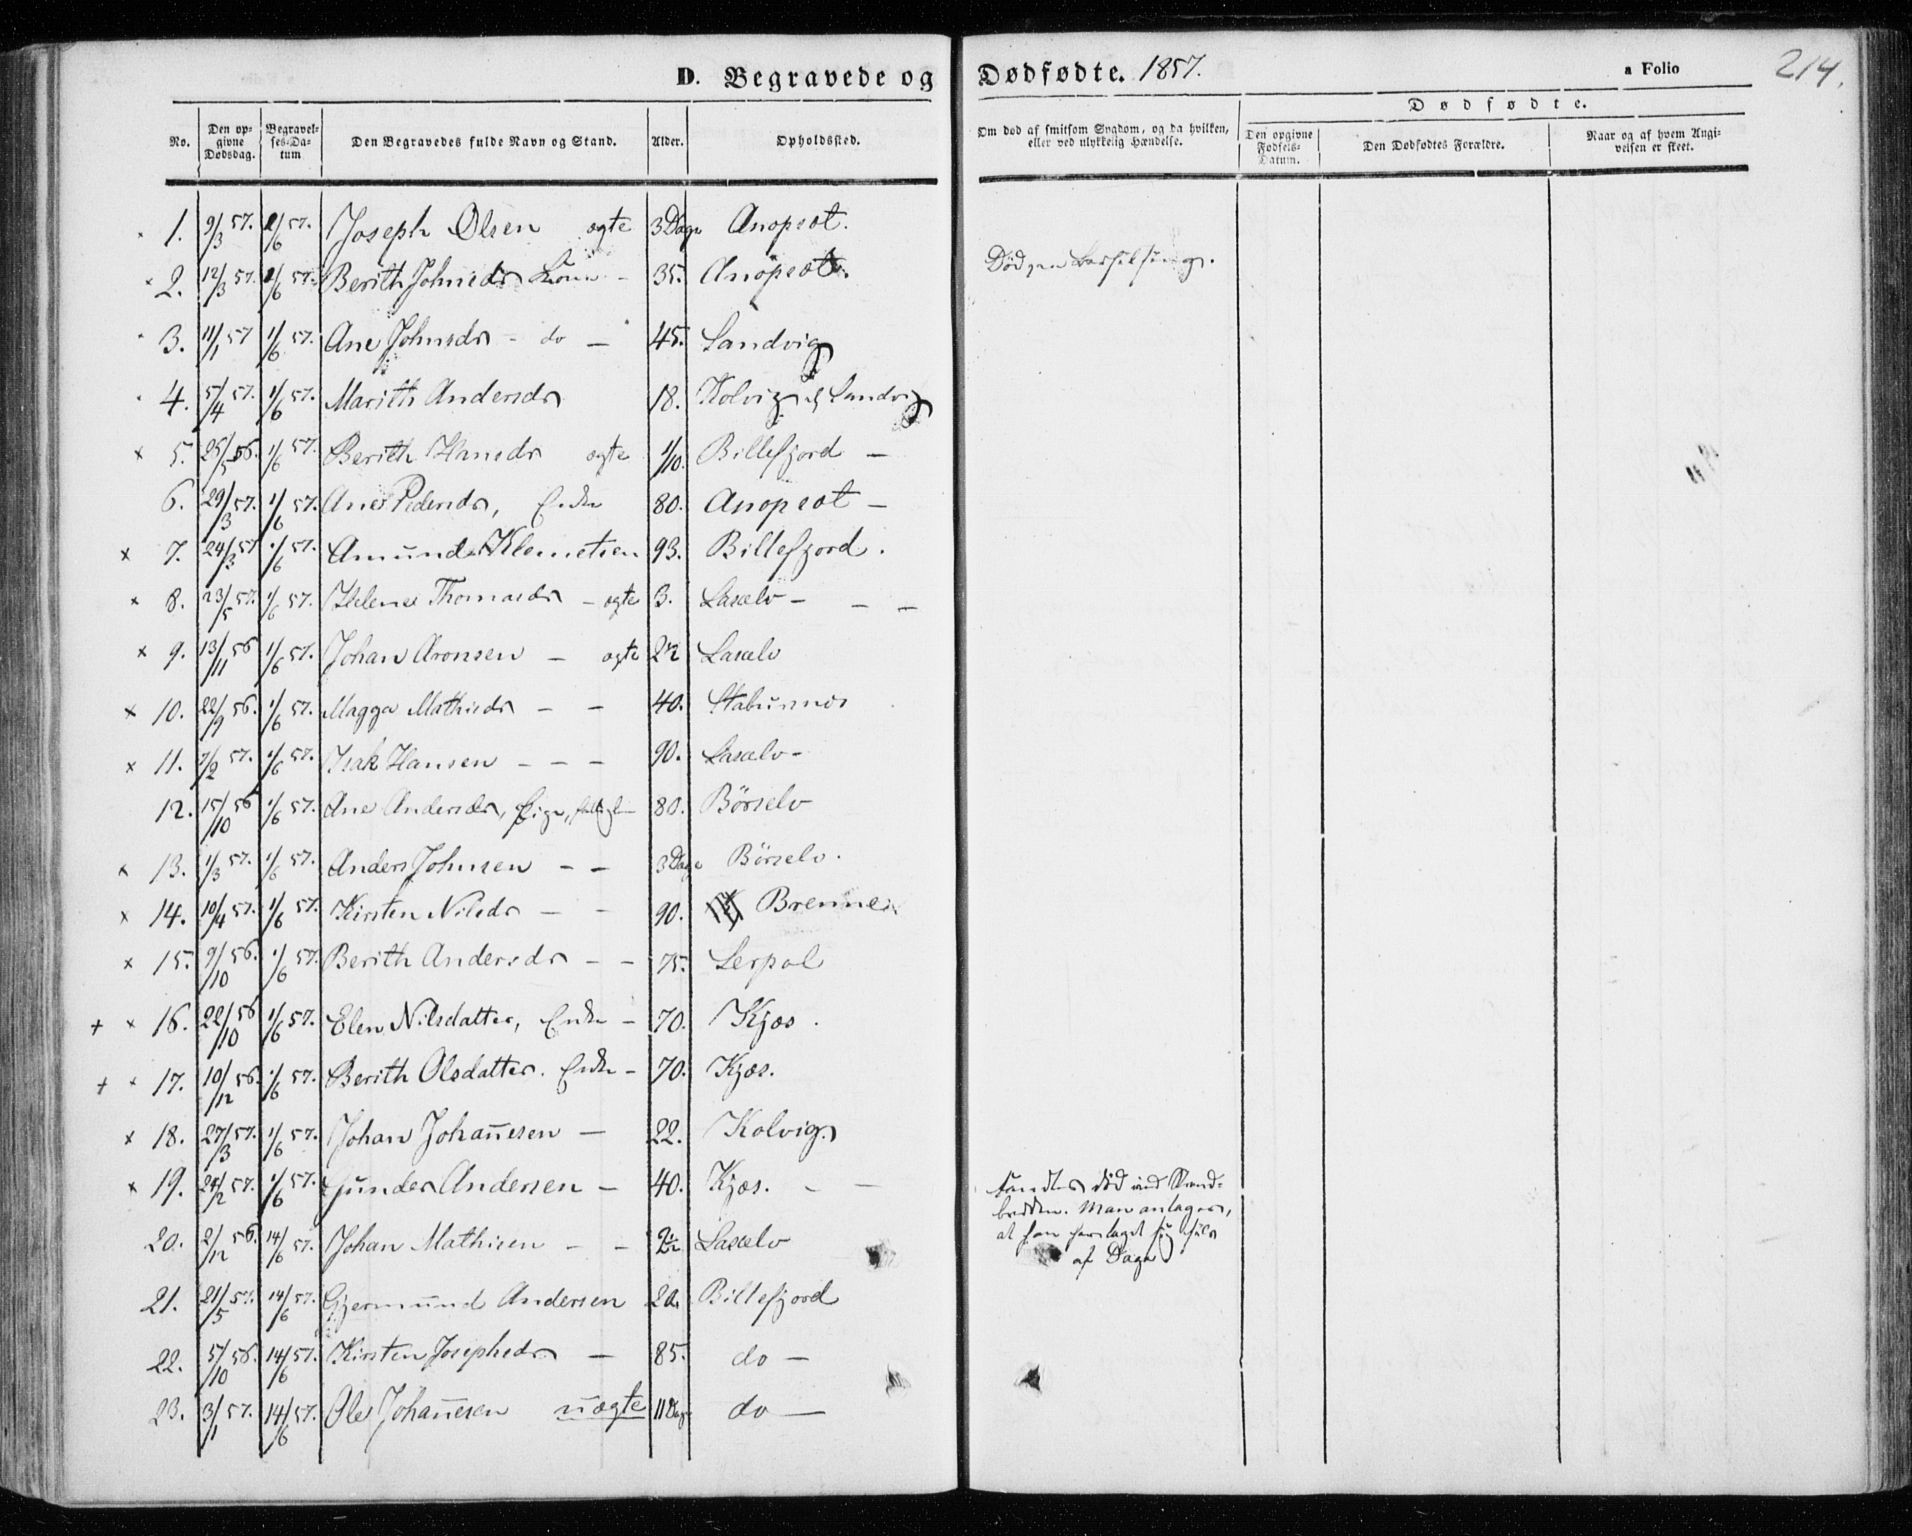 D. Begravede og Dødfødte. 1857.
a Folio 214.
No. Den opgivne Dødsdag. Begravelses-Datum Den Begravedes fulde Navn og Stand. Alder. Opholdssted. Om død af smitsom Sygdom, og da hvilken, eller ved ulykkelig Hændelse. Dødfødte.
Den opgivne Fødsels-Datum. Den Dødfødtes Forældre. Naar og af hvem Angivelsen er skeet.
1. 9/3 57. 2/6 57. Joseph Olsen ægte 3 Dage Anopset.
2. 12/3 57. 2/6 57. Berith Johnsdr Kone - 35. Anopset. Død paa Barselseng.
3. 11/1 57 1/6 57. Ane Johnsdr - do - 45. Sandvig
4. 5/4 57. 1/6 57. Marith Andersdr 18. Kolvig Sandvig
× 5. 1/6 57. Berith Hansdr ægte 1/10. Billefjord -
6. 29/3 57. 1/6 57. Ane Pedersdr, Enke 80. Anopset -
× 7. 24/3 57 1/6 57. Amund Klemetsen 93. Billefjord.
× 8. 23/5 57. 1/6 57. Helene Thomasdr - ægte 3. Laxelv - - -
× 9. 13/11 56 1/6 57. Johan Aronsen - ægte 2½ Laxelv
× 10. 22/9 56. 1/6 57. Magga Mathisdr - - 40. Stabursnes
× 11. 7/2 57. 1/6 57. Isak Hansen - - - 90. Laxelv -
12. 15/10 56 1/6 57. Ane Andersdr, Pige, 80. Børselv
× 13. 1/3 57. 1/6 57. Anders Johnsen - - 3 Dage Børselv.
× 14. 10/4 57. 1/6 57. Kirsten Nilsdr - - 90. Brenne
× 15. 9/10 56. 1/6 57. Berith Andersdr - - 75. Lerpol
+ × 16. 22/10 56 1/6 57. Elen Nilsdatter, Enke - 70. Kjæs.
+ × 17. 10/12 56. 1/6 57. Berith Olsdatter. Enke - 70. Kjæs.
× 18. 27/3 57. 1/6 57. Johan Johannesen - 22. Kolvig.
× 19. 24/2 57. 1/6 57. Gunder Andersen - 40. Kjæs. - - fandtes død ved Strand-
bredden. Man antager,
at han har taget sig selv
af Dage
20. 2/12 56. 14/6 57. Johan Mathisen - - 2½ Laxelv
21. 21/5 57. 14/6 57. Gjermund Andersen 20. Billefjord
22. 5/10 56. 14/6 57. Kirsten Josephsdr - 85. do -
23. 3/1 57. 14/6 57. Ole Johannesen uægte 11 Dage do -